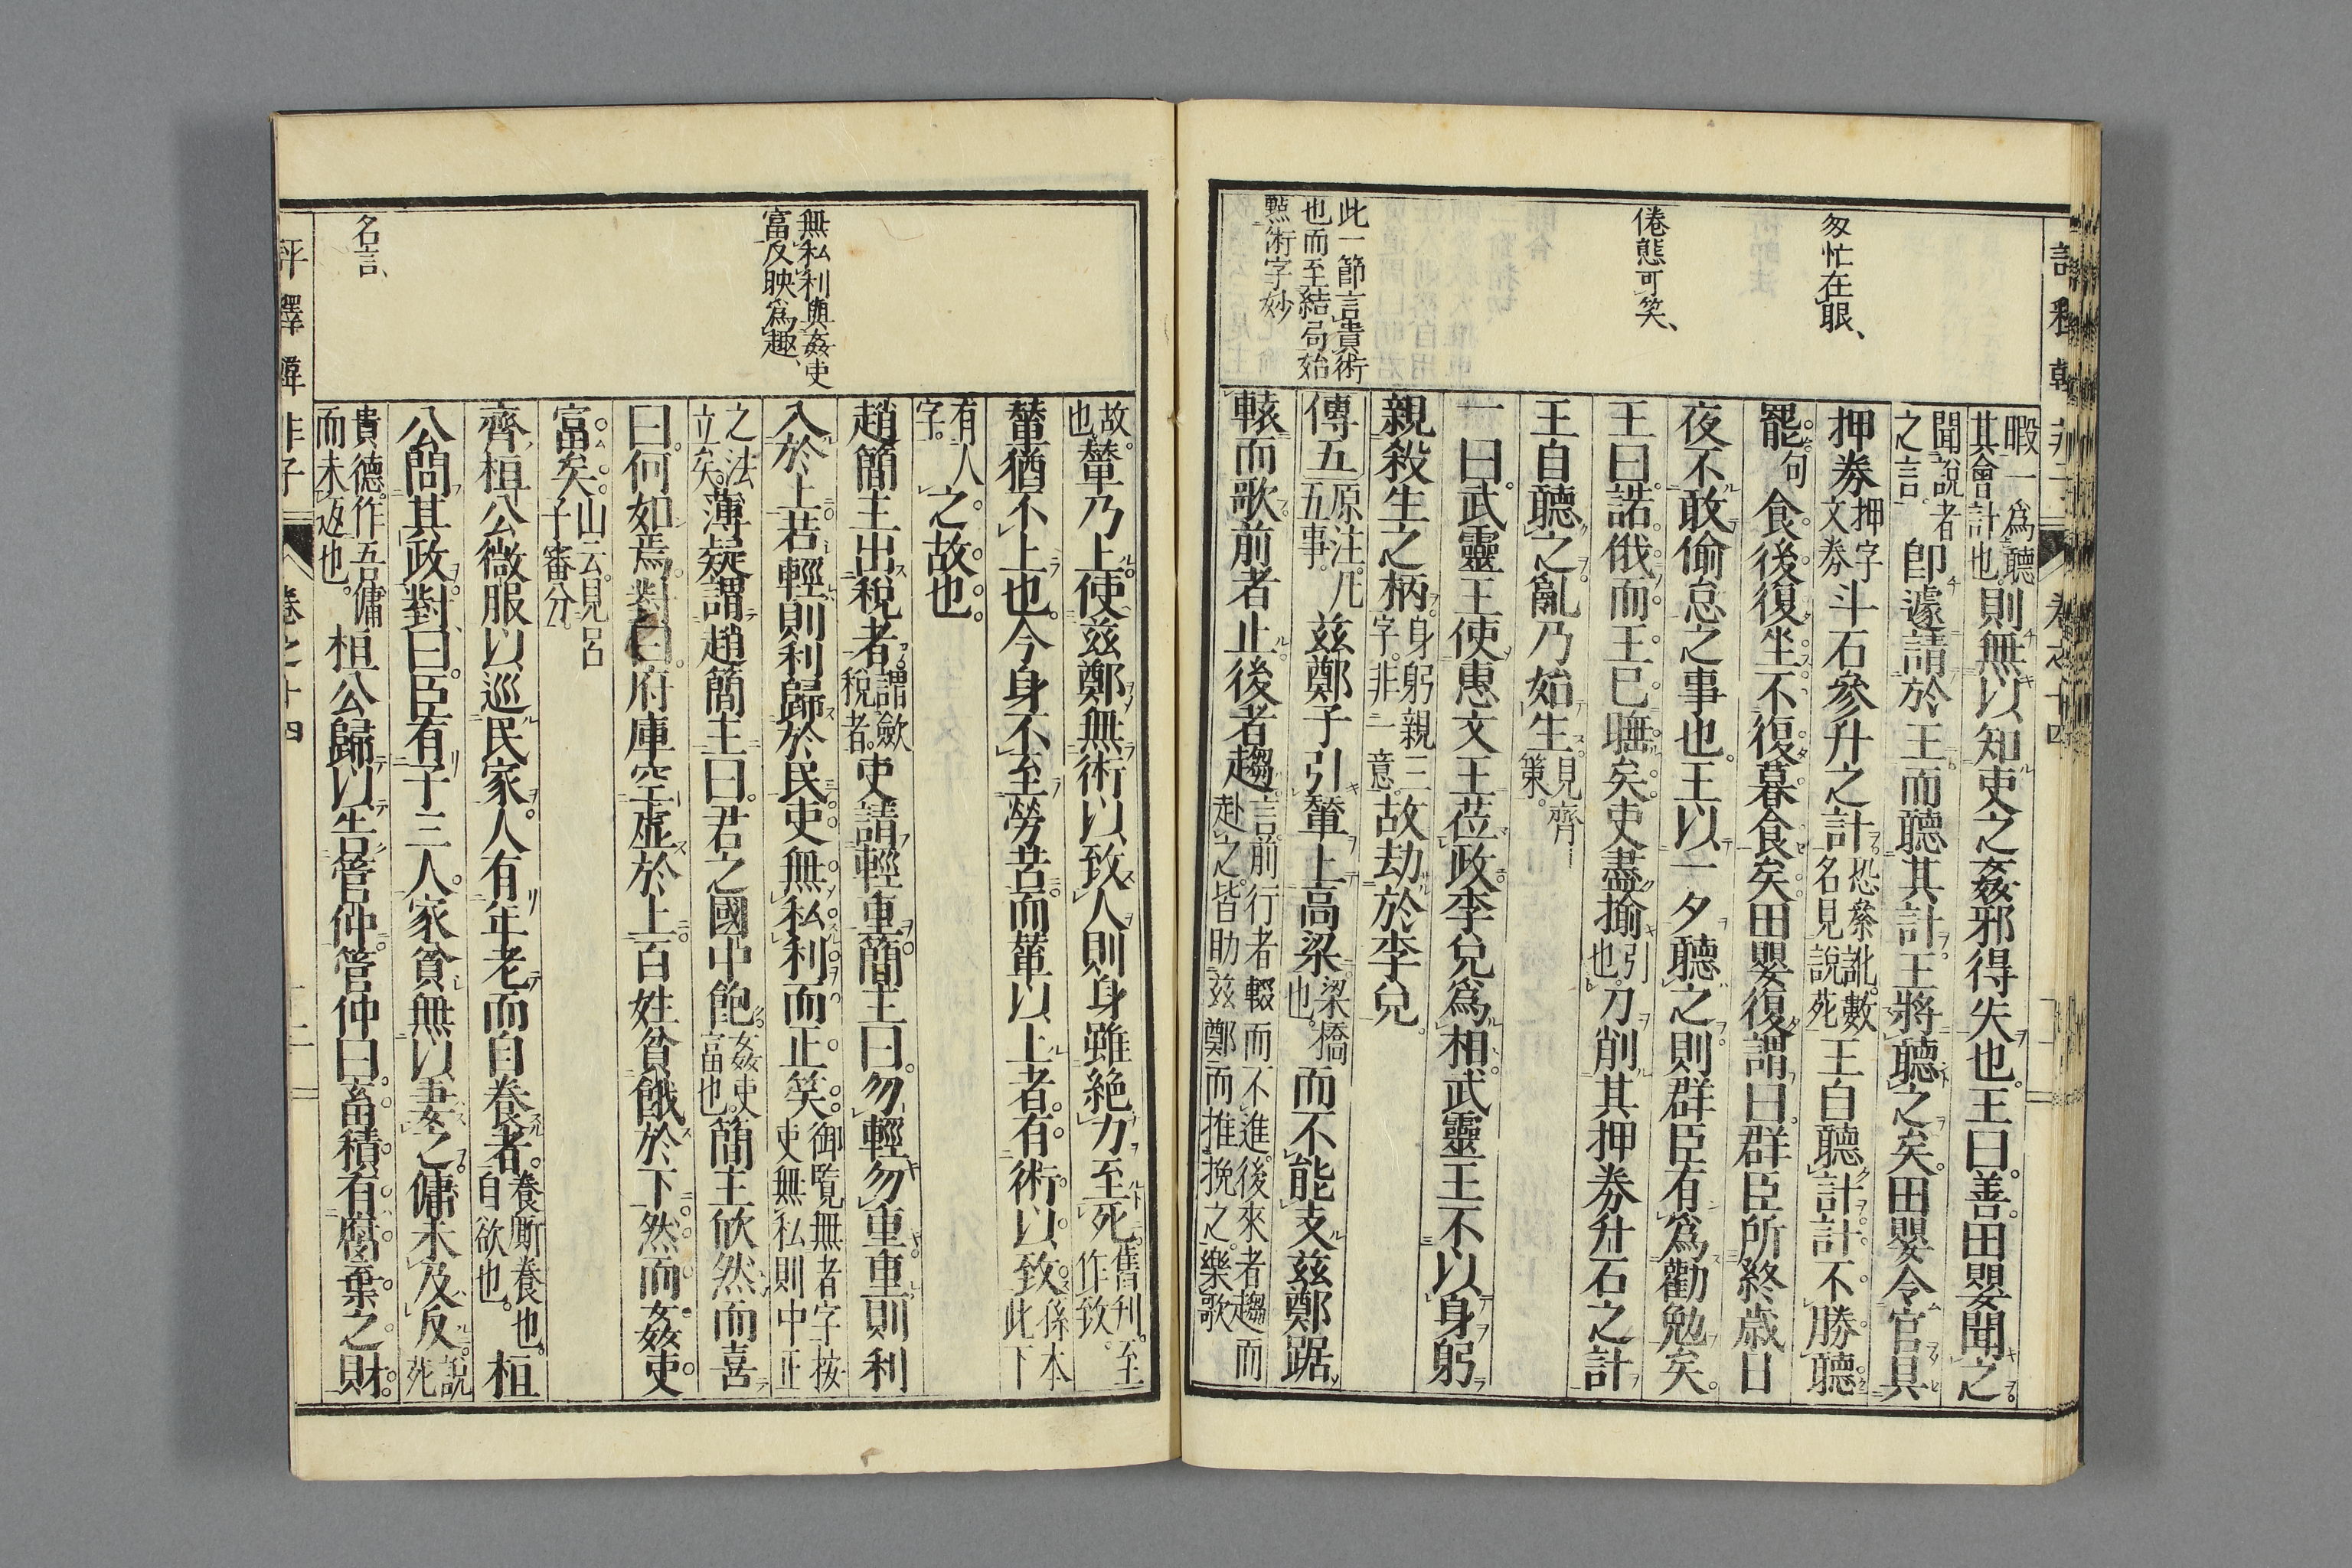 匆忙在眼、
倦態可笑、
此一節言貴術
也而至結局始
點術字妙
暇一爲聽
其會計也。則無以知吏之姦邪得失也。王曰。善。田嬰聞之。
聞說者
之言。卽遽請於王而聽其計。王將聽之矣。田嬰令官具
押劵押字
文劵斗石參升之計恐絫訛。數
名見說死王自聽計。計不勝聽。
罷。句食後復坐。不復暮食矣。田嬰復謂曰。群臣所終歲日
夜不敢偷怠之事也。王以一夕聽之。則群臣有爲勸勉矣。
王曰。諾。俄而王已睡矣。吏盡揄引
也。刀削其押劵升石之計
王自聽之。亂乃始生。見齊
策。
一曰。武靈王使惠文王莅政。李兌爲相。武靈王不以身躬
親殺生之柄。身躬親三
字。非一意。故劫於李兌。
傳五原注。凡
五事。茲鄭子引輦上高梁。梁橋
也。而不能支。茲鄭踞
轅而歌。前者止。後者趨。言前行者輟而不進。後來者趨而
赴之。皆助茲鄭而推挽之。樂歌
評釋韓非子 卷之十四
無私利與姦吏
富反映爲趣、
名言、
故。
也輦乃上。使茲鄭無術以致人。則身雖絕力至死。舊刊。至
作致。
輦猶不上也。今身不至勞苦。而輦以上者。有術以致係本
此下
有人
字。之故也。
趙簡主出稅者。謂歛
稅者。吏請輕重。簡主曰。勿輕勿重。重則利
入於上。若輕則利歸於民。吏無私利而正矣。御覽無者字。按
吏無私則中正
之法
立矣。薄疑謂趙簡主曰。君之國中飽。姦吏
富也。簡主欣然而喜
曰。何如焉。對曰。府庫空虛於上。百姓貧餓於下。然而姦吏
富矣。山云。見呂
子審分。
齊桓公微服以巡民家。人有年老而自養者。養厮養也。
自欲也。桓
公問其政。對曰。臣有子三人。家貧無以妻之。傭未及反。說
死
貴德。作吾傭
而未返也。桓公歸以告管仲。管仲曰。畜積有腐棄之財。
評釋韓非子 卷之十四